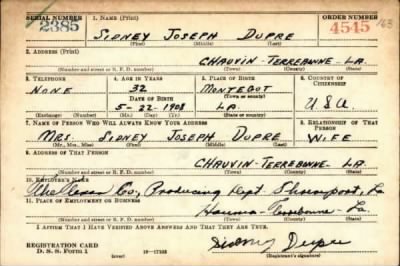 SERIAL NUMBER 1. NAME (Print) ORDER NUMBER
2385 SIDNEY JOSEPH DUPRE 4545 163
(First) (Middle) (Last)
2. ADDRESS (Print)
CHAUVIN-TERREBONNE-LA.
(Number and street or R. F. D. number) (Town) (County) (State)
3. TELEPHONE 4. AGE IN YEARS 5. PLACE OF BIRTH 6. COUNTRY OF CITIZENSHIP
NONE 32 MONTEGUT
DATE OF BIRTH (Town or county)
5-22-1908 LA. USA
(Exchange) (Number) (Mo.) (Day) (Yr.) (State or country)
7. NAME OF PERSON WHO WILL ALWAYS KNOW YOUR ADDRESS 8. RELATIONSHIP OF THAT PERSON
MRS. SIDNEY JOSEPH DUPRE WIFE
(Mr., Mrs., Miss) (First) (Middle) (Last)
9. ADDRESS OF THAT PERSON
CHAUVIN-TERREBONNE-LA.
(Number and street or R. F. D. number) (Town) (County) (State)
10. EMPLOYER'S NAME
The Texas Co, Producing Dept. Shreveport, La
11. PLACE OF EMPLOYMENT OR BUSINESS
Houma-Terrebonne-La
(Number and street or R. F. D. number) (Town) (County) (State)
I AFFIRM THAT I HAVE VERIFIED ABOVE ANSWERS AND THAT THEY ARE TRUE.
Sidney Dupre
REGISTRATION CARD
D. S. S. Form 1 (over) (Registrant's signature)